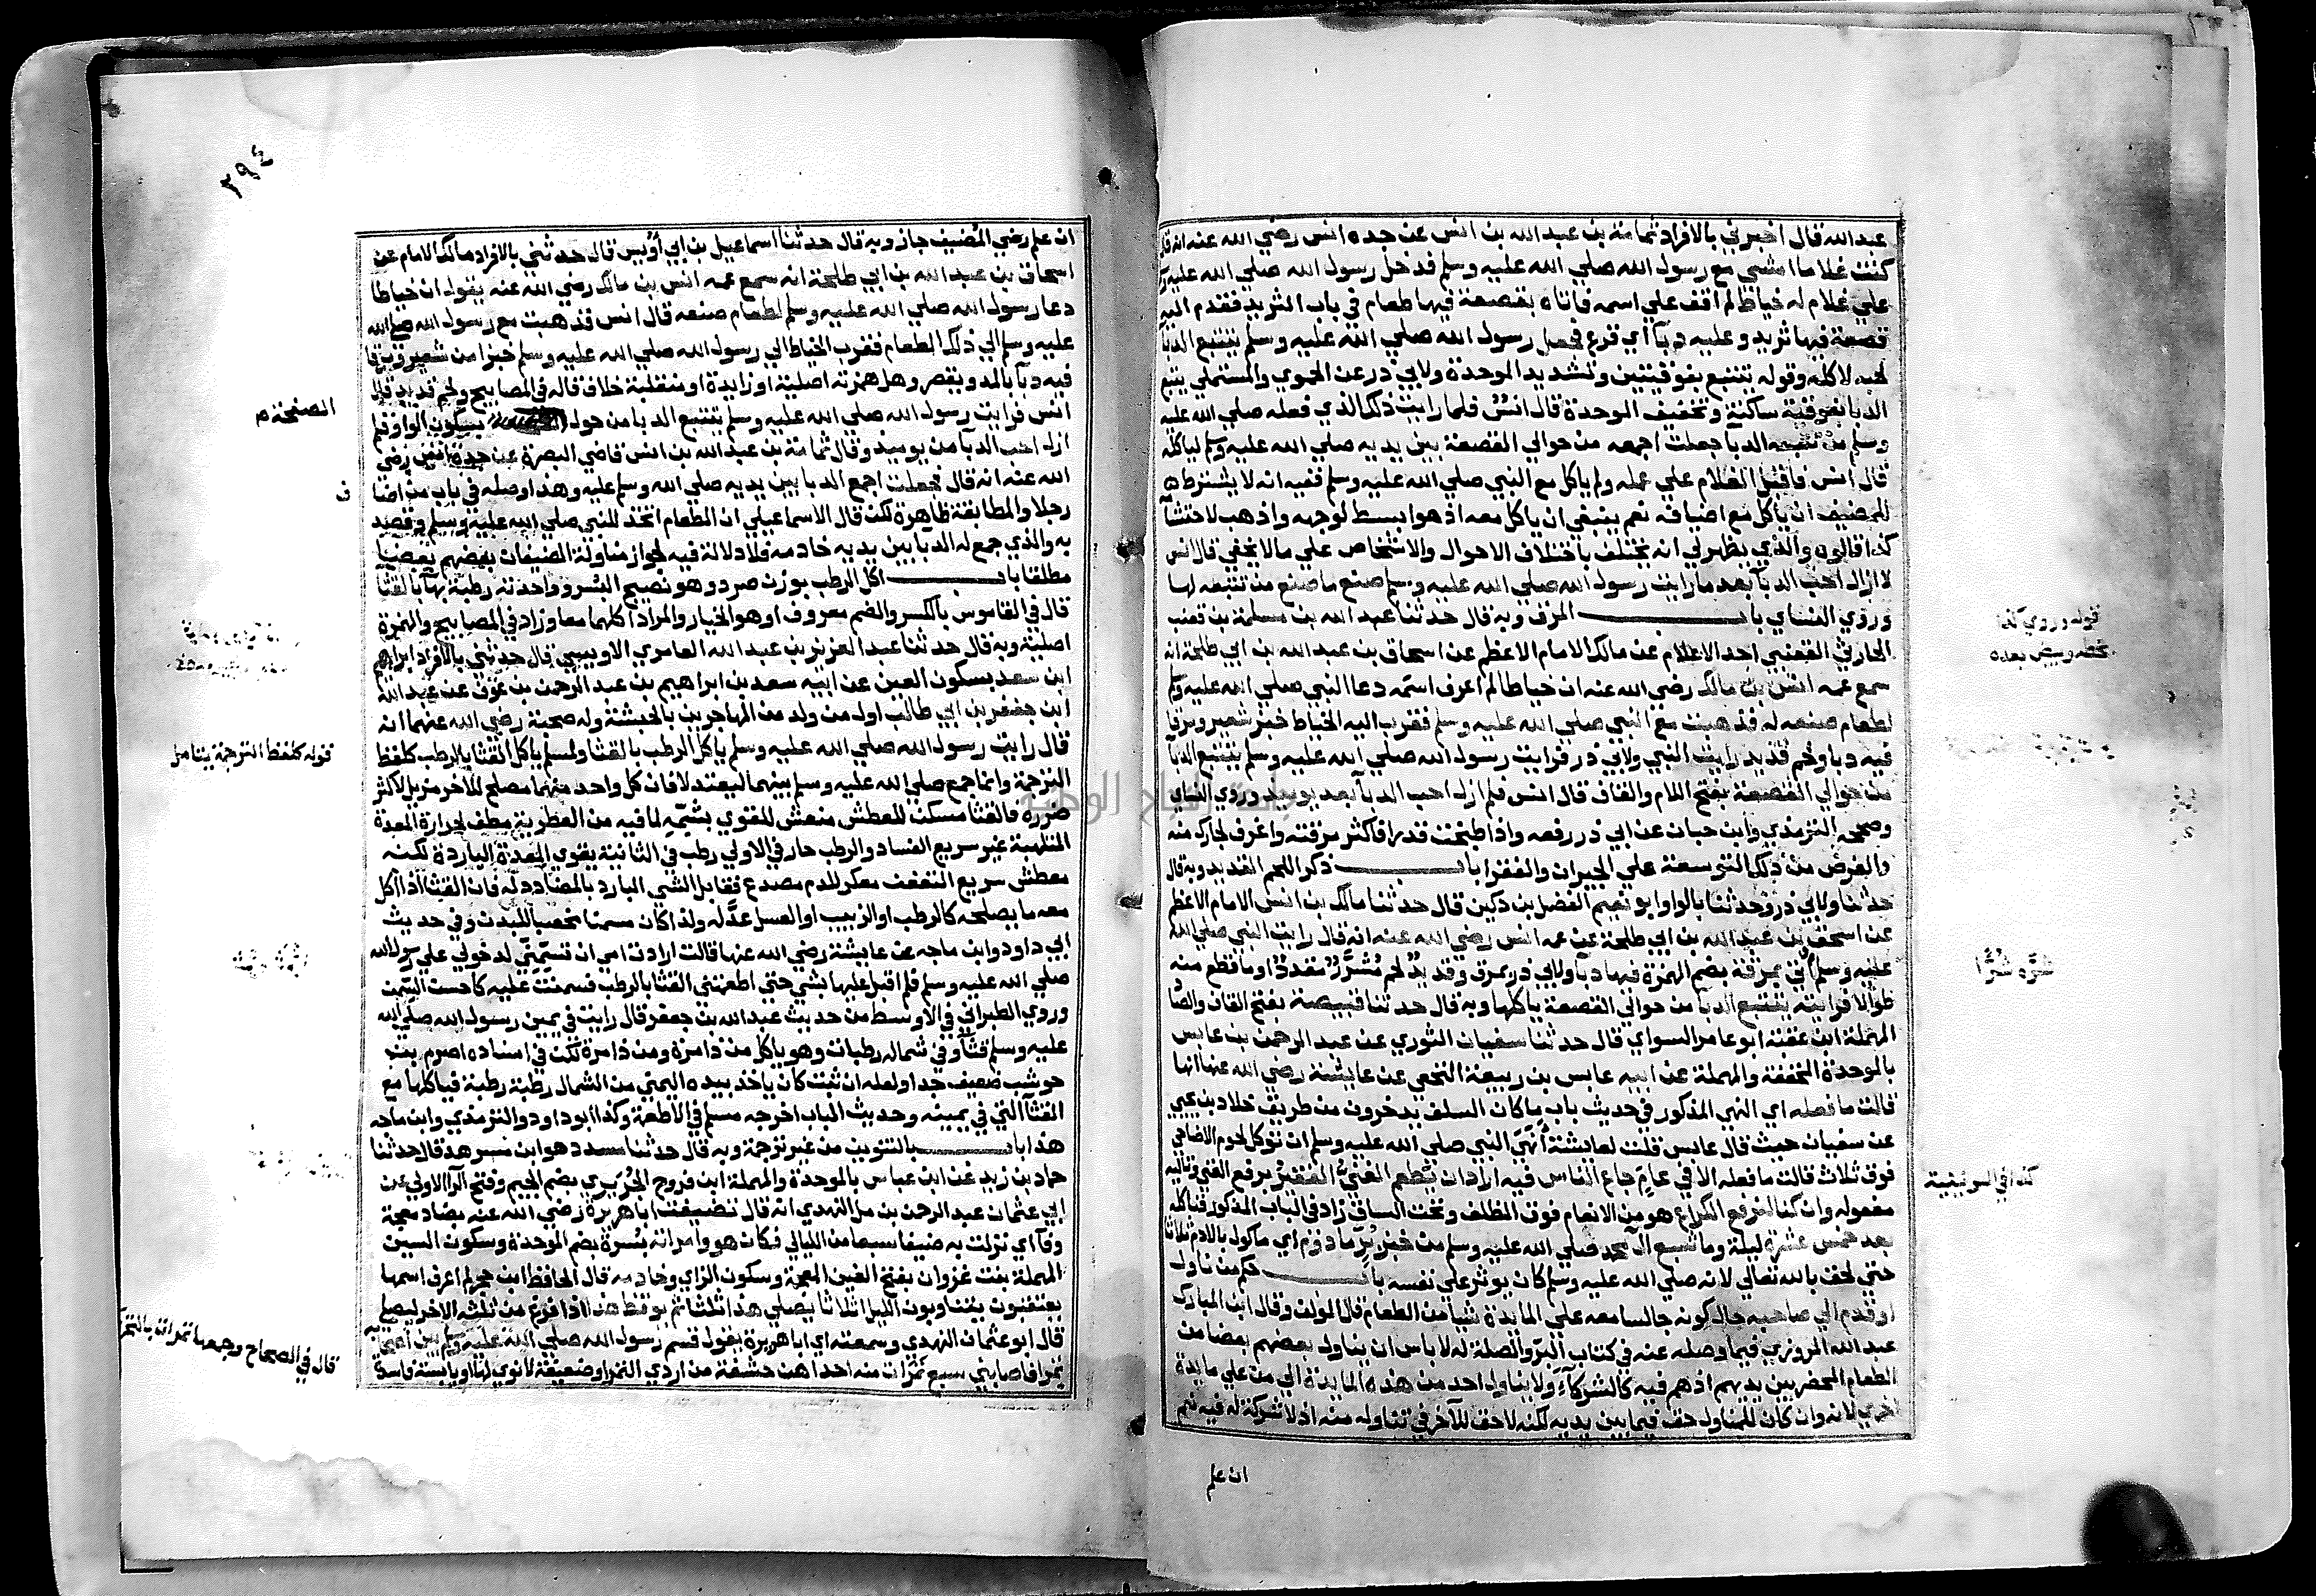 عبد الله قال اخبرني بالافراد ثمامة بن عبد الله بن انس عن جده انس رضي الله عنه انه قال
كنت غلاما امشي مع رسول الله صلي الله عليه وسلم فدخل رسول الله صلي الله عليه و
علي غلام له خياط لم اقف علي اسمه فاتاه بقصعة فيها طعام في باب الثريد فقدم اليه
قصعة فيها ثريد وعليه دبآ اي قرع فجعل رسول الله صلي الله عليه وسلم يتتبع الدبآ
لحبه لاكله وقوله يتتبع بفوقيتين وتشديد الموحدة ولابي ذر عن الحموي والمستملي يتبع
الدبا بفوقية ساكنة وتخفيف الموحدة قال انس فلما رايت ذلك الذي فعله صلي الله عليه
وسلم من تتبعه الدبآ جعلت اجمعه من حوالي القصعة بين يديه صلي الله عليه وسلم لياكله
قال انس فاقبل الغلام علي عمله ولم ياكل مع النبي صلي الله عليه وسلم ففيه انه لا يشترط
للمضيف ان ياكل مع اضيافه نعم ينبغي ان ياكل معه اذ هو ابسط لوجهه واذهب لاحتشا
كذا قالوه والذي يظهر لي انه يختلف باختلاف الاحوال والاشخاص علي ما لا يخفي قال انس
لا ازال احب الدبآ بعد ما رايت رسول الله صلي الله عليه وسلم صنع ما صنع من تتبعه لها
وروي النساي باب المرق وبه قال حدثنا عبد الله بن مسلمة بن قعنب
الحارثي القعنبي احد الاعلام عن مالك الامام الاعظم عن اسحاق بن عبد الله بن ابي طلحة انه
سمع عمه انس بن مالك رضي الله عنه ان خياطا لم اعرف اسمه دعا النبي صلي الله عليه وسلم
لطعام صنعه له فذهبت مع النبي صلي الله عليه وسلم فقرب اليه الخياط خبز شعير ومرقا
فيه دبا ولحم قديد رايت النبي ولابي ذر فرايت رسول الله صلي الله عليه وسلم يتتبع الدبآ
من حوالي القصعة بفتح اللام والقاف قال انس فلم ازل احب الدبآ بعد يوميذ وروي النساي
وصححه الترمذي وابن حبان عن ابي ذر رفعه واذا طبخت قدرا فاكثر مرقته واغرف لجارك منه
والغرض من ذلك التوسعة علي الجيران والفقرا باب ذكر اللحم القديد وبه قال
حدثنا ولابي ذر وحدثنا بالواو ابو نعيم الفضل بن دكين قال حدثنا مالك بن انس الامام الاعظم
عن اسحق بن عبد الله بن ابي طلحة عن عمه انس رضي الله عنه انه قال رايت النبي صلي الله
عليه وسلم أُتي بمرقة بضم الهمزة فيها دبآ ولابي ذر بمرق وقديد لحم مُشَرَّر مقدد او ما قطع منه
طوالا فرايته يتتبع الدبآ من حوالي القصعة ياكلها وبه قال حدثنا قبيصة بفتح القاف والصاد
المهملة ابن عقبة ابو عامر السواي قال حدثنا سفيان الثوري عن عبد الرحمن بن عابس
بالموحدة المخففة والمهملة عن ابيه عابس بن ربيعة النخعي عن عايشة رضي الله عنها انها
قالت ما فعله اي النهي المذكور في حديث باب ما كان السلف يدخرون من طريق خلاد بن يحيي
عن سفيان حيث قال عابس قلت لعايشة أنَهَيَ النبي صلي الله عليه وسلم ان توكل لحوم الاضاحي
فوق ثلاث قالت ما فعله الا في عام جاع الناس فيه اراد ان يطعم الغنيُّ الفقيرَ برفع الغني وتاليه
مفعوله وان كنا لنرفع الكراع هو من الانعام فوق الظلف وتحت الساق زاد في الباب المذكور فناكله
بعد خمس عشرة ليلة وما شبع آل محمد صلي الله عليه وسلم من خبز برّ مادوم اي ماكول بالادم ثلاثا
حتي لحق بالله تعالي لانه صلي الله عليه وسلم كان يوثر علي نفسه باب حكم من ناول
او قدم الي صاحبه حال كونه جالسا معه علي المايدة شيا من الطعام قال المولف وقال ابن المبارك
عبد الله المروزي فيما وصله عنه في كتاب البر والصلة له لا باس ان يناول بعضهم بعضا من
الطعام المحضر بين يديهم اذ هم فيه كالشركآء ولا يناول احد من هذه المايدة الي من علي مايدة
اخري لانه وان كان للمناول حق فيما بين يديه لكنه لا حق للآخر في تناوله منه اذ لا شركة له فيه نعم
ان علم
قوله وروي كذا
بخطه وبيض بعده
شرّه شرًّا
كذا في اليونينية
٢٩٤
ان علم رضي المُضيف جاز وبه قال حدثنا اسماعيل بن ابي أويس قال حدثني بالافراد مالك الامام عن
اسحاق بن عبد الله بن ابي طلحة انه سمع عمه انس بن مالك رضي الله عنه يقول ان خياطا
دعا رسول الله صلي الله عليه وسلم لطعام صنعه قال انس فذهبت مع رسول الله صلي الله
عليه وسلم الي ذلك الطعام فقرب الخياط الي رسول الله صلي الله عليه وسلم خبزا من شعير ومرقا
فيه دبآ بالمد ويقصر وهل همزته اصلية او زايدة او منقلبة خلاف قاله في المصابيح ولحم قديد قال
انس فرايت رسول الله صلي الله عليه وسلم يتتبع الدبا من حول بسكون الواو فلم
ازل احب الدبآ من يوميذ وقال ثمامة بن عبد الله بن انس قاضي البصرة عن جده انس رضي
الله عنه انه قال فجعلت اجمع الدبا بين يديه صلي الله وسلم عليه وهذا وصله في باب من اضا
رجلا والمطابقة ظاهرة لكن قال الاسماعيلي ان الطعام اتخذ للنبي صلي الله عليه وسلم وقصد
به والذي جمع له الدبآ بين يديه خادمه فلا دلالة فيه لجواز مناولة الضيفان بعضهم بعضا
مطلقا باب اكل الرطب بوزن صرد وهو نضيج البُسر وواحدته رطبة بهآ بالقثآ
قال في القاموس بالكسر والضم معروف او هو الخيار والمراد اكلهما معا وزاد في المصابيح والهمزة
اصلية وبه قال حدثنا عبد العزيز بن عبد الله العامري الاويسي قال حدثني بالافراد ابراهيم
ابن سعد بسكون العين عن ابيه سعد بن ابراهيم بن عبد الرحمن بن عوف عن عبد الله
ابن جعفر بن ابي طالب اول من ولد من المهاجرين بالحبشة وله صحبة رضي الله عنهما انه
قال رايت رسول الله صلي الله عليه وسلم ياكل الرطب بالقثا ولمسلم ياكل القثا بالرطب كلفظ
الترجمة وانما جمع صلي الله عليه وسلم بينهما ليعتدلا فان كل واحد منهما مصلح للآخر مزيل لاكثر
ضرره فالقثا مسكن للعطش منعش للقوي بشمّه لما فيه من العطرية مطف لحرارة المعدة
الملتهبة غير سريع الفساد والرطب حار في الاولي رطب في الثانية يقوي المعدة الباردة لكنه
معطش سريع التعفن معكر للدم مصدع فقابل الشي البارد بالمضاد له فان القثا اذا اكل
معه ما يصلحه كالرطب او الزبيب او العسل عدَّله ولذا كان مسمنا مخصبا للبدن وفي حديث
ابي داود وابن ماجه عن عايشة رضي الله عنها قالت ارادت امي ان تسمّني لدخولي علي رسول الله
صلي الله عليه وسلم فلم اقبل عليها بشي حتي اطعمتني القثا بالرطب فسمنت عليه كاحسن السِّمن
وروي الطبراني في الاوسط من حديث عبد الله بن جعفر قال رايت في يمين رسول الله صلي الله
عليه وسلم قثآ وفي شماله رطبات وهو ياكل من ذا مرة ومن ذا مرة لكن في اسناده اصرم بن
حوشب ضعيف جدا ولعله ان ثبت كان ياخذ بيده اليمني من الشمال رطبة رطبة فياكلها مع
القثآ التي في يمينه وحديث الباب اخرجه مسلم في الاطعمة وكذا ابو داود والترمذي وابن ماجه
هذا باب بالتنوين من غير ترجمة وبه قال حدثنا مسدد هو ابن مسرهد قال حدثنا
حماد بن زيد عن ابن عباس بالموحدة والمهملة ابن فروخ الجُرَيري بضم الجيم وفتح الرآ الاولي عن
ابي عثمان عبد الرحمن بن مل النهدي انه قال تضيفت ابا هريرة رضي الله عنه بضاد معجمة
وفآ اي نزلت به ضيفا سبعا من الليالي فكان هو وامراته بُسرة بضم الموحدة وسكون السين
المهملة بنت غزوان بفتح الغين المعجمة وسكون الزاي وخادمه قال الحافظ ابن حجر لم اعرف اسمها
يعتقبون يتناوبون الليل اثلاثا يصلي هذا ثلثا ثم يوقظ هذا اذا فرغ من ثلثه الاخر ليصلي
قال ابو عثمان النهدي وسمعته اي ابا هريرة يقول قسم رسول الله صلي الله عليه وسلم بين اصحابه
تمرا فاصابني سبع تَمَرَات منه احداهن حشفة من اردي التمر او ضعيفة لا نوي لها او يابسة فاسدة
الصفحة م
ف
قوله كلفظ الترجمة يتامل
قال في الصحاح وجمعها تمرات بالتحر